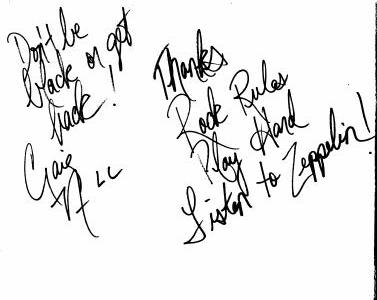 Don't be
black or get
back!
Thanks
Rock Rules
Play Hard
Listen to Zeppelin!